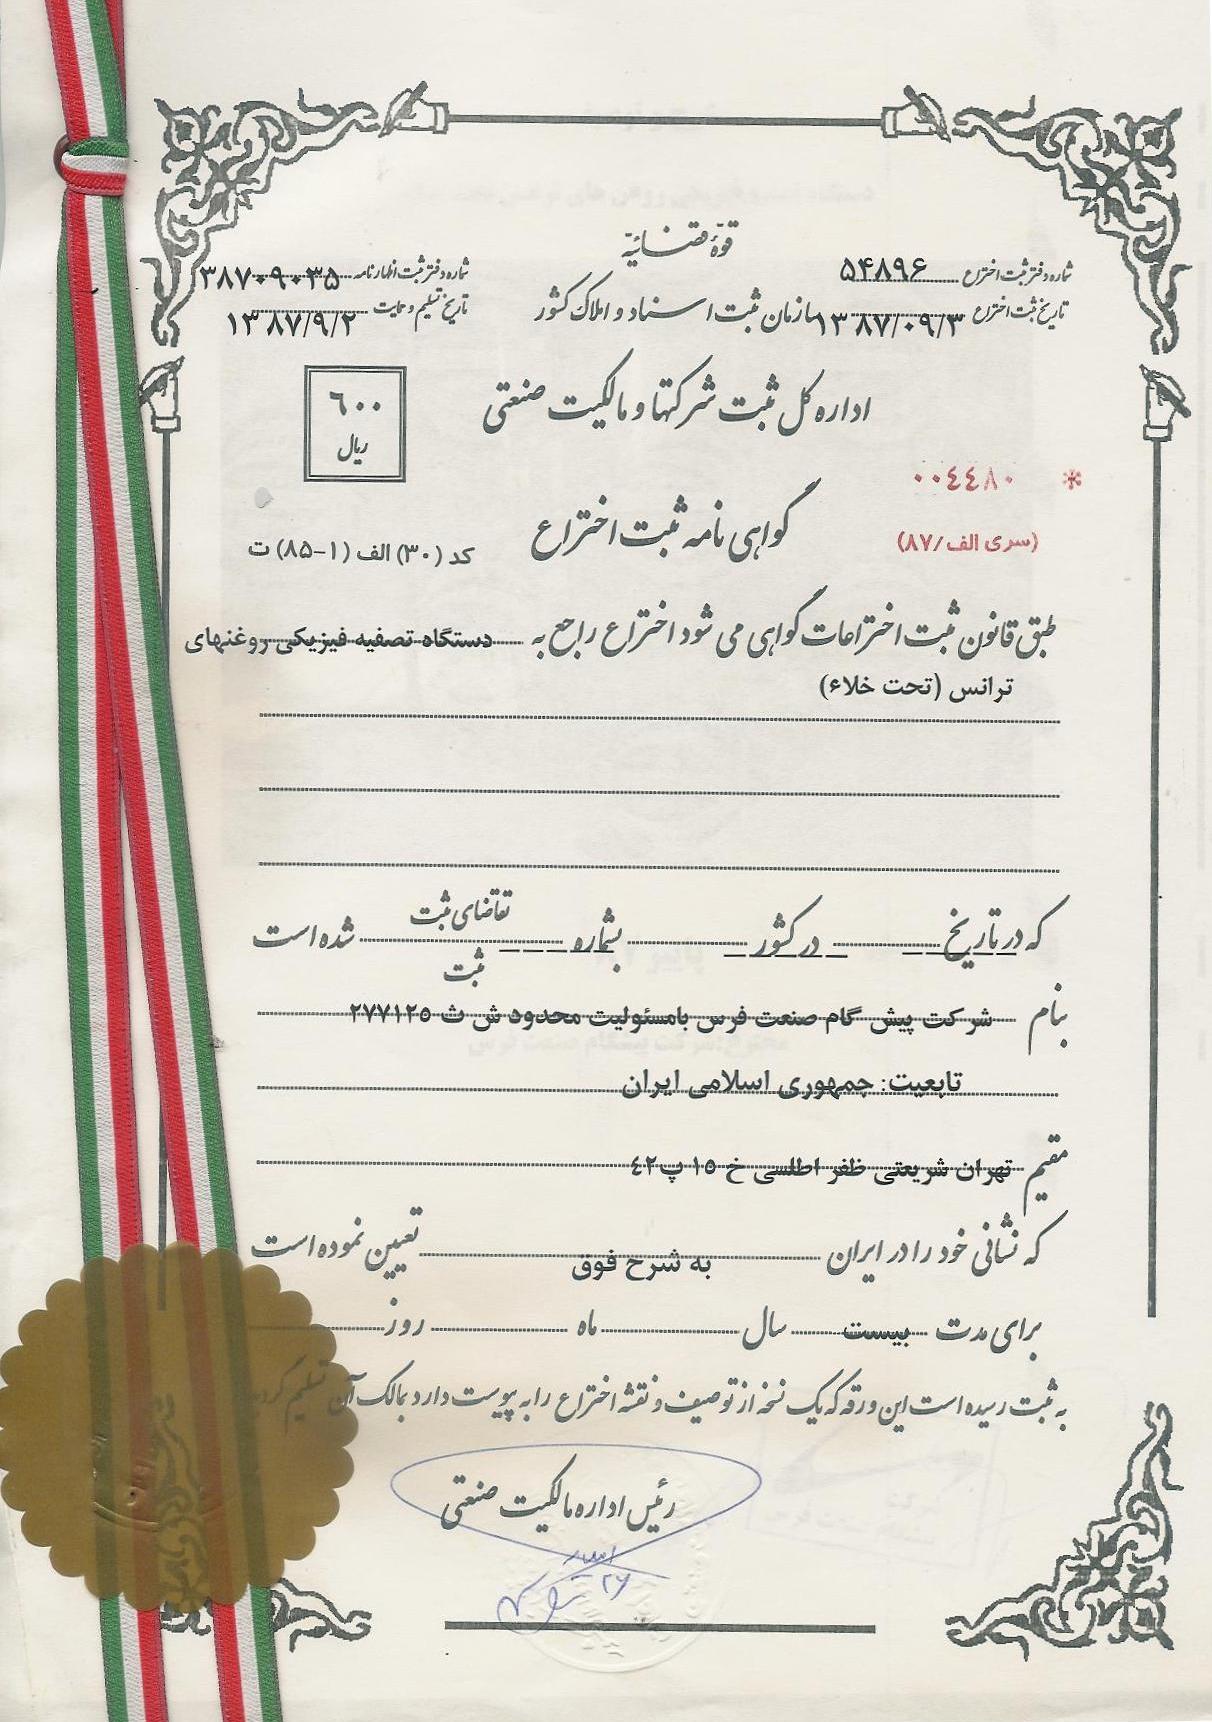 قوّۀ قضائیّه
شماره دفتر ثبت اختراع ۵۴۸۹۶
شماره دفتر ثبت اظهارنامه ۳۸۷۰۹۰۳۵
سازمان ثبت اسناد و املاک کشور
تاریخ ثبت اختراع ۱۳۸۷/۰۹/۳
تاریخ تسلیم و حمایت ۱۳۸۷/۹/۲
اداره کل ثبت شرکتها و مالکیت صنعتی
۶۰۰
ریال
* ۰۰٤٤۸۰
(سری الف/۸۷)
گواهی نامه ثبت اختراع
کد (۳۰) الف (۱-۸۵) ت
طبق قانون ثبت اختراعات گواهی می شود اختراع راجع به دستگاه تصفیه فیزیکی روغنهای
ترانس (تحت خلاء)
که در تاریخ در کشور بشماره تقاضای ثبت شده است
ثبت
بنام شرکت پیش گام صنعت فرس بامسئولیت محدود ش ث ۲۷۷۱۲۵
تابعیت: جمهوری اسلامی ایران
مقیم تهران شریعتی ظفر اطلسی خ ۱۵ پ۴۲
که نشانی خود را در ایران به شرح فوق تعیین نموده است
برای مدت بیست سال ماه روز
به ثبت رسیده است این ورقه که یک نسخه از توصیف و نقشه اختراع را به پیوست دارد بمالک آن تسلیم گردید
رئیس اداره مالکیت صنعتی